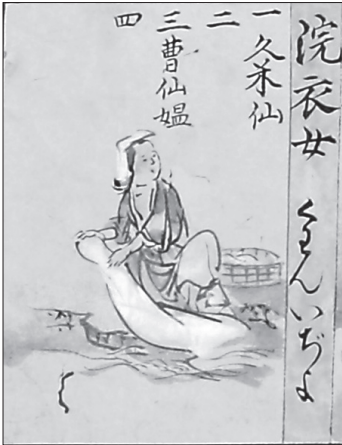 浣衣女 くわんいぢよ
一久米仙
二
三曹仙媼
四